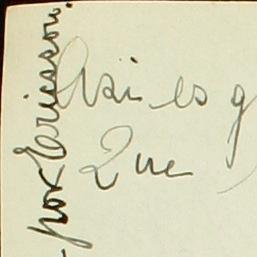 Asi es q
Que
por Ericsson.